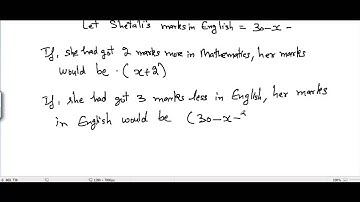 Let Shefali's marks in English = 30-x -
If, she had got 2 marks more in Mathematics, her marks
would be . (x+2)
If, she had got 3 marks less in English, her marks
in English would be (30-x-